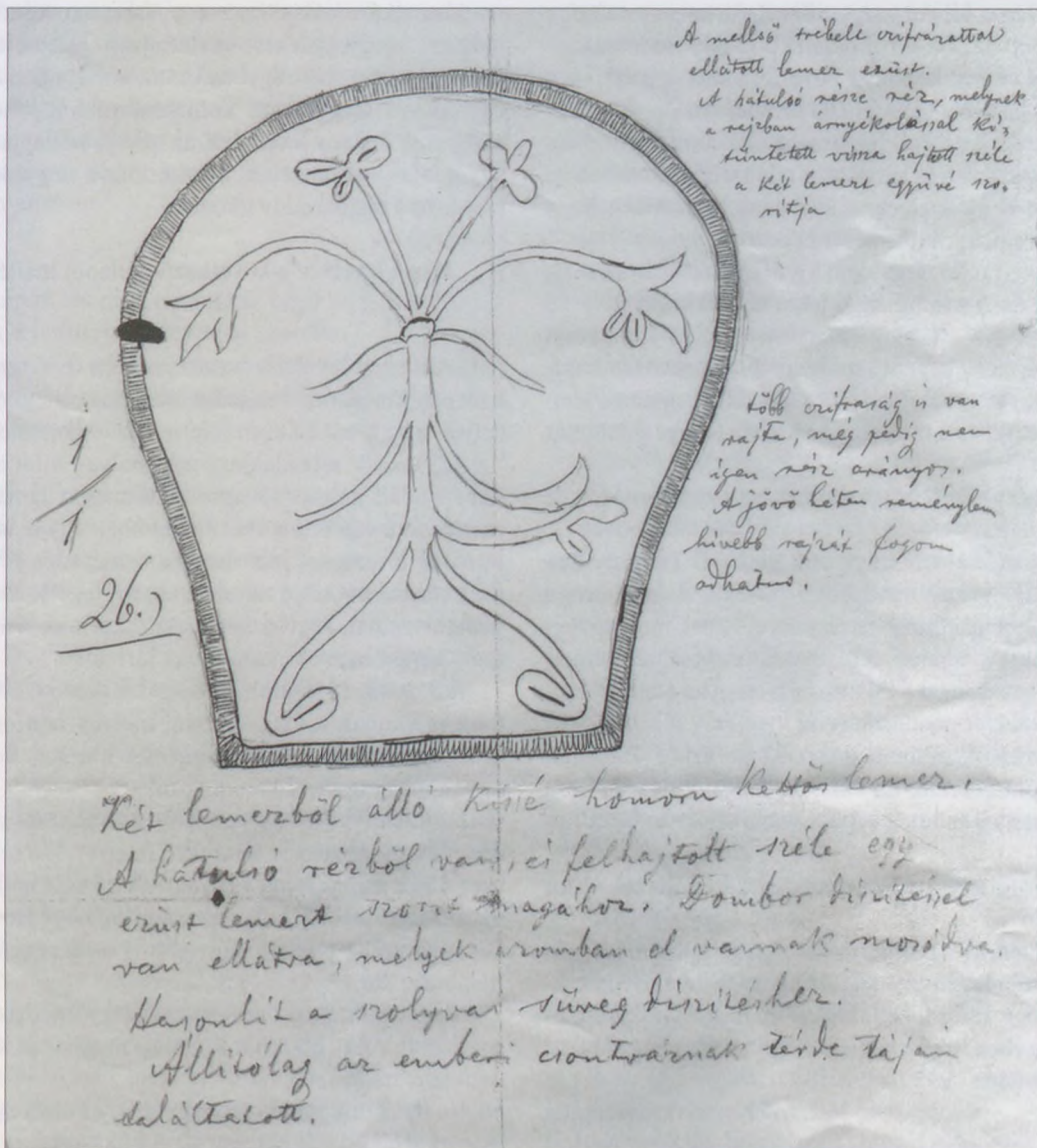 A mellső trébelt czifrázattal
ellátott lemez ezüst.
A hátulsó része réz, melynek
a rajzban árnyékolással ki-
tüntetett vissza hajtott széle
a két lemezt együvé szo-
ritja
több czifraság is van
rajta, még pedig nem
igen rész arányos.
A jövő héten reménylem
hivebb rajzát fogom
adhatni.
1
1
26.)
Két lemezből álló kissé homoru kettős lemez.
A hátulsó rézből van, és felhajtott széle egy
ezüst lemezt szorit magához. Dombor diszitéssel
van ellátva, melyek azomban el vannak mosódva.
Hasonlit a szolyvai süveg diszitéshez.
Állitólag az emberi csontváznak térde táján
találtatott.